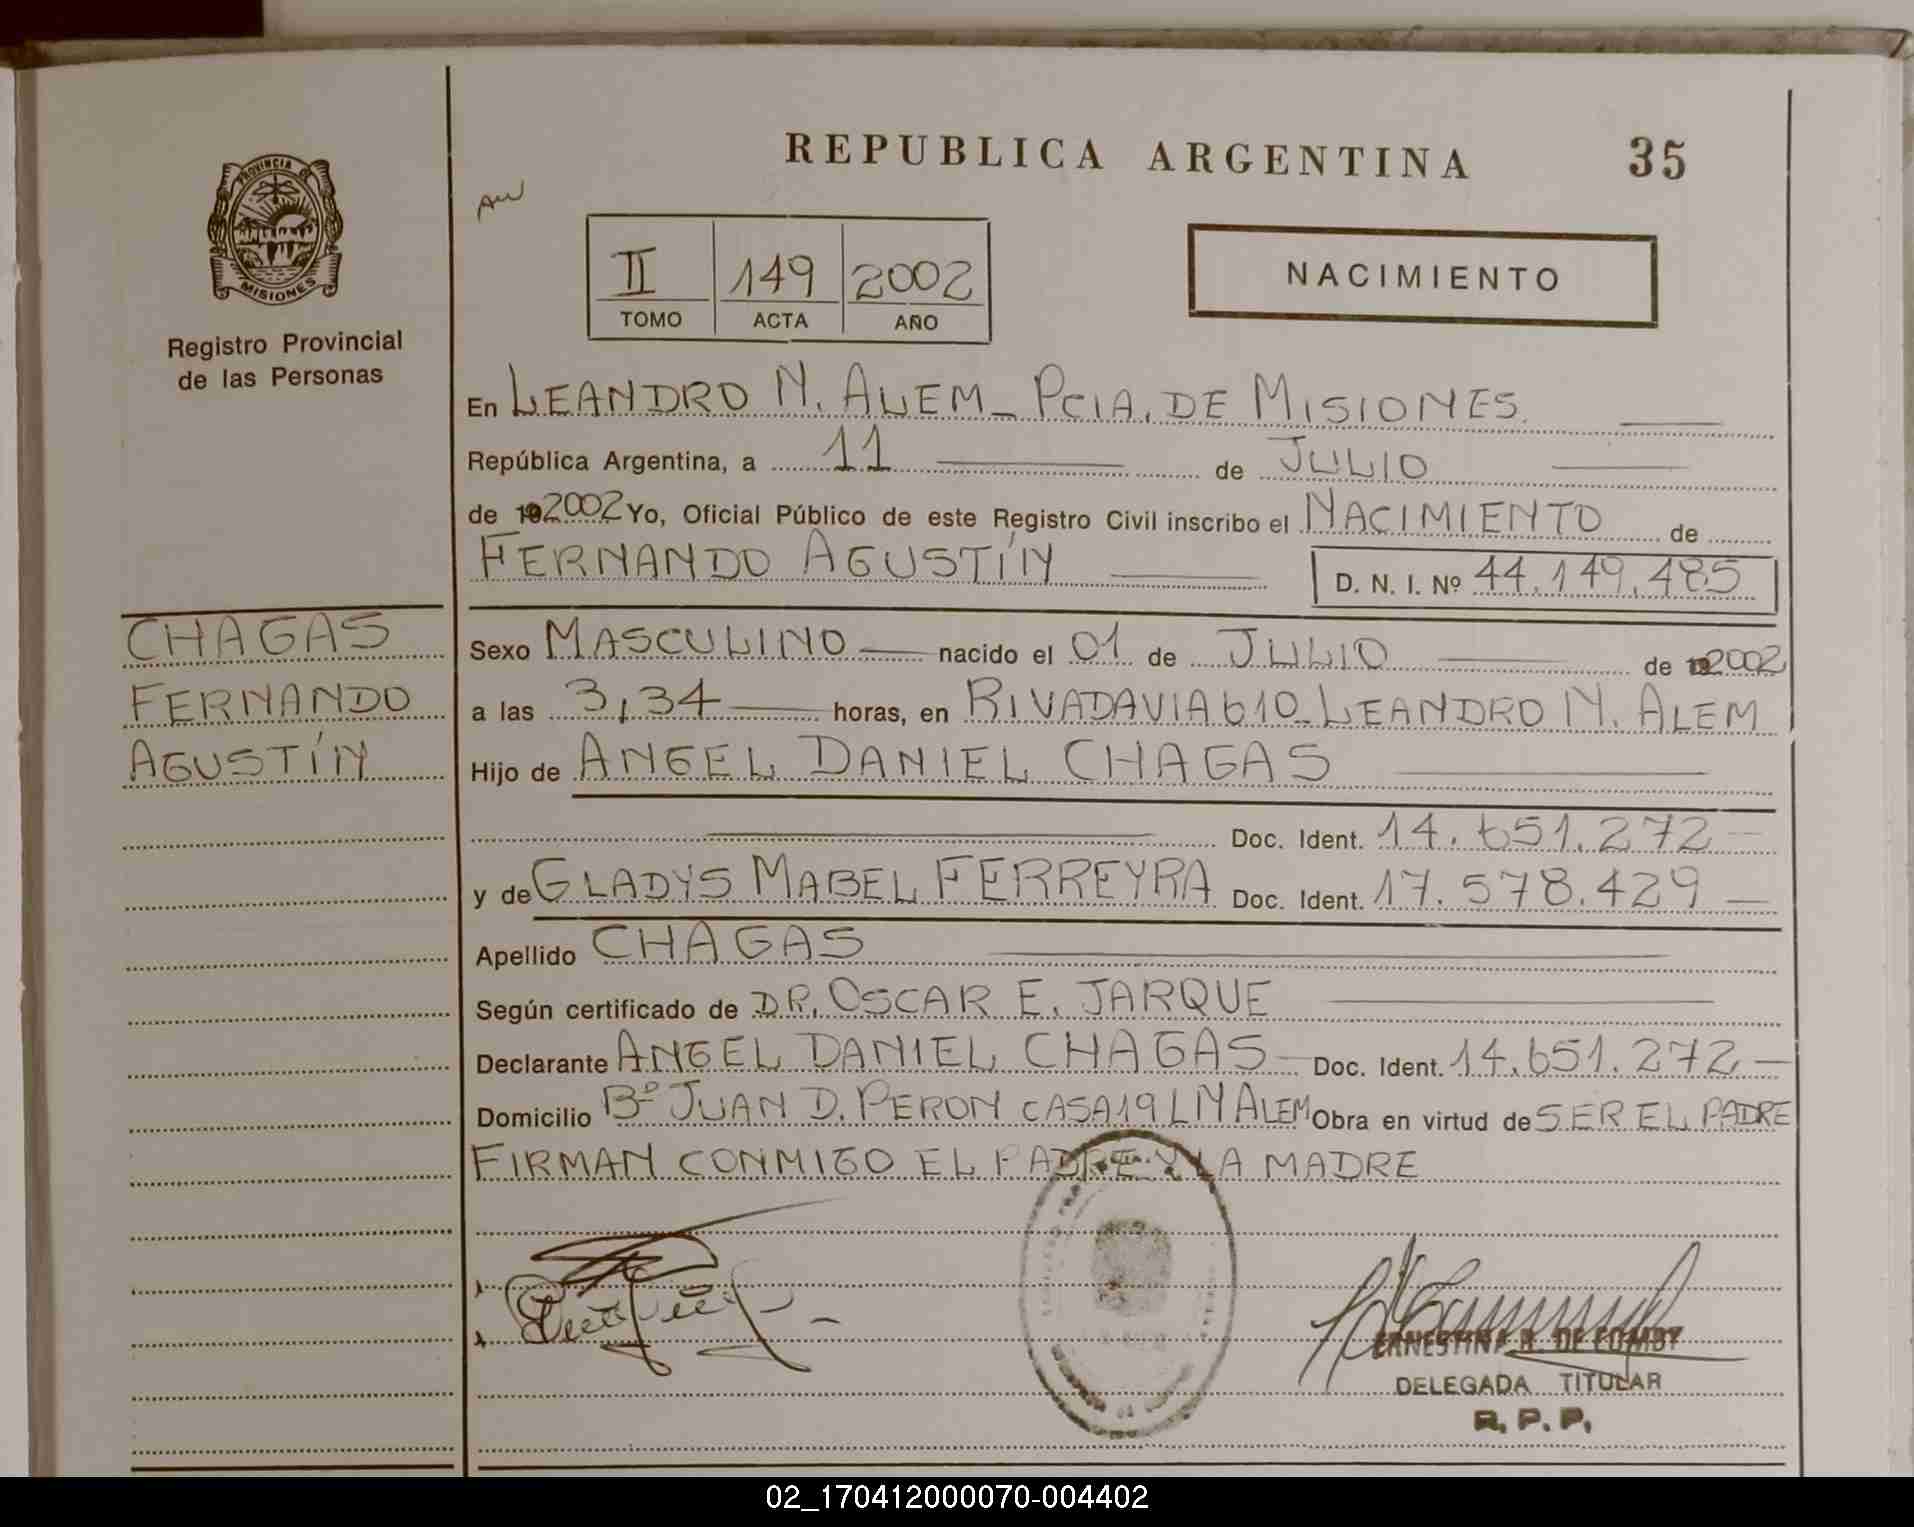 REPUBLICA ARGENTINA 35
PROVINCIA DE
MISIONES
Registro Provincial
de las Personas
II 149 2002
TOMO ACTA AÑO
NACIMIENTO
En LEANDRO N. ALEM_ PCIA. DE MISIONES.
República Argentina, a 11 de JULIO
de 2002 Yo, Oficial Público de este Registro Civil inscribo el NACIMIENTO de
FERNANDO AGUSTÍN D. N. I. Nº 44.149.485
CHAGAS
FERNANDO
AGUSTÍN
Sexo MASCULINO nacido el 01 de JULIO de 2002
a las 3,34 horas, en RIVADAVIA 610_LEANDRO N. ALEM
Hijo de ANGEL DANIEL CHAGAS
Doc. Ident. 14.651.272
y de GLADYS MABEL FERREYRA Doc. Ident. 17.578.429
Apellido CHAGAS
Según certificado de DR. OSCAR E. JARQUE
Declarante ANGEL DANIEL CHAGAS Doc. Ident. 14.651.272
Domicilio Bº JUAN D. PERON CASA 19 L N ALEM Obra en virtud de SER EL PADRE
FIRMAN CONMIGO EL PADRE Y LA MADRE
DELEGADA TITULAR
R. P. P.
02_170412000070-004402